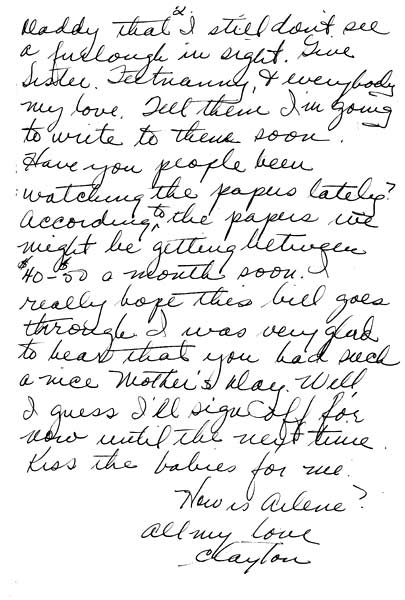 2.
Daddy that I still don't see
a furlough in sight. Give
Sister, Festnanny, & everybody
my love. Tell them I'm going
to write to them soon.
Have you people been
watching the papers lately?
According to the papers we
might be getting between
$40-$50 a month soon. I
really hope this bill goes
through. I was very glad
to hear that you had such
a nice Mother's Day. Well,
I guess I'll sign off for
now until the next time.
Kiss the babies for me.
How is Arlene?
All my love
Clayton